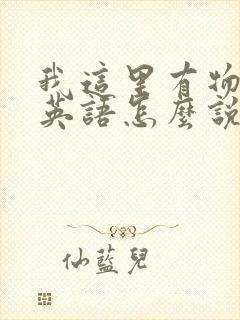 我這里有物
英語怎麼說
仙藍兒